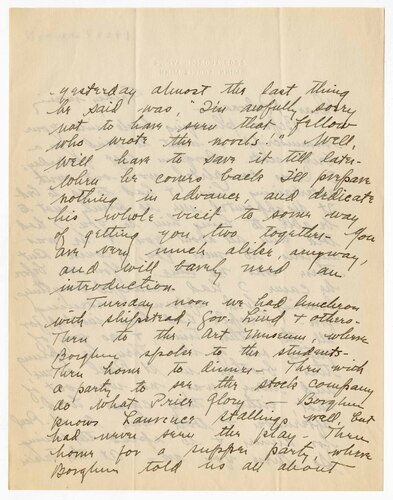 yesterday almost the last thing
he said was, "I'm awfully sorry
not to have seen that fellow
who wrote the novels." Well,
we'll have to save it till later-
When he comes back I'll prepare
nothing in advance and dedicate
his whole visit to some way
of getting you two together- You
are very much alike, anyway,
and will barely need an
introduction.
Tuesday noon we had luncheon
with Shipstead, Gov. Lind & others-
Then to the Art Museum, where
Borglum spoke to the students-
Then home to dinner- Then with
a party to see the stock company
do What Price Glory - Borglum
knows Lawrence Stallings well, but
had never seen the play- Then
home for a supper party, where
Borglum told us all about